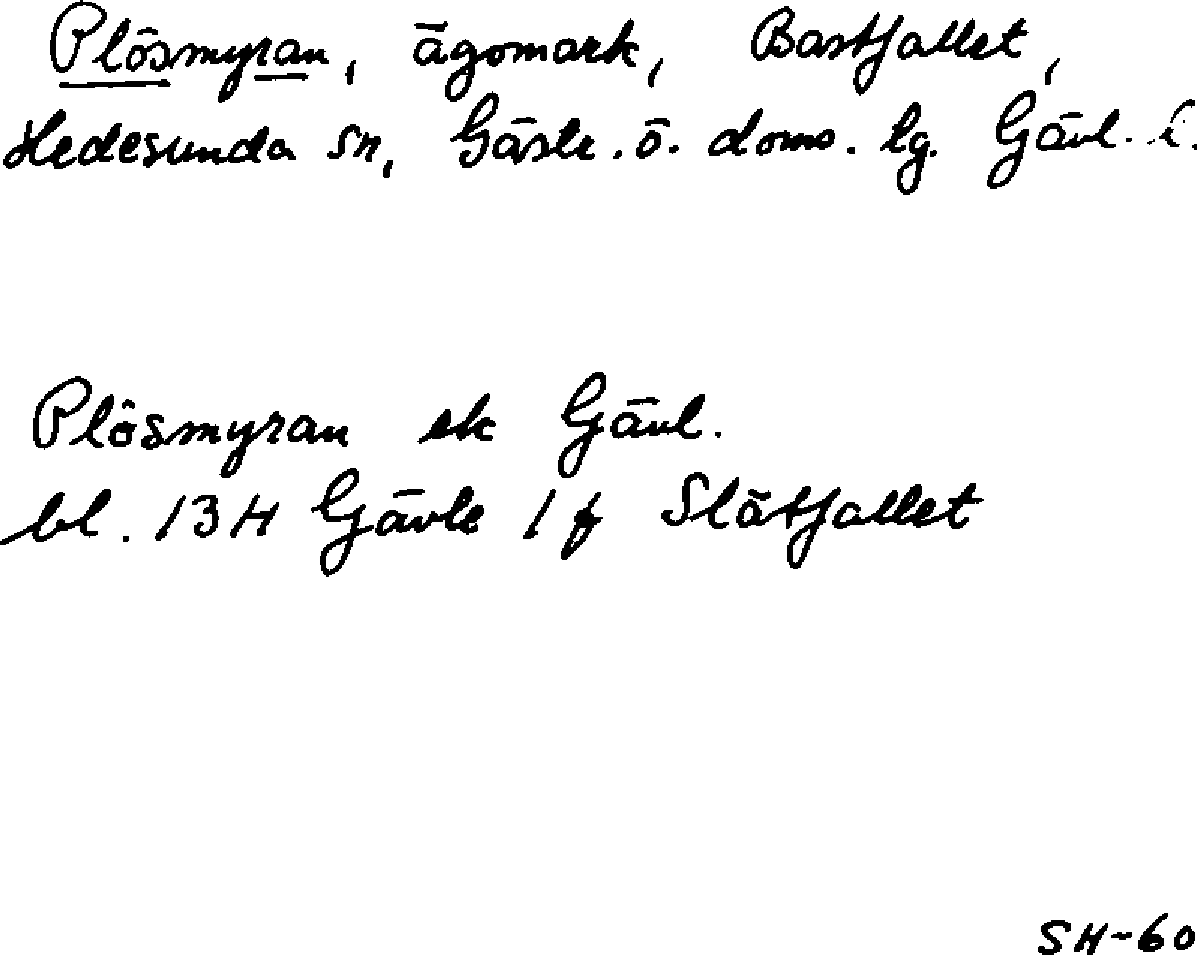 Plösmyran, ägomark, Bastfallet,
Hedesunda sn, Gästr. ö. doms. lg. Gävl. l.
Plösmyran ek Gävl.
bl. 13H Gävle 1 f Slåtfallet
SH-60